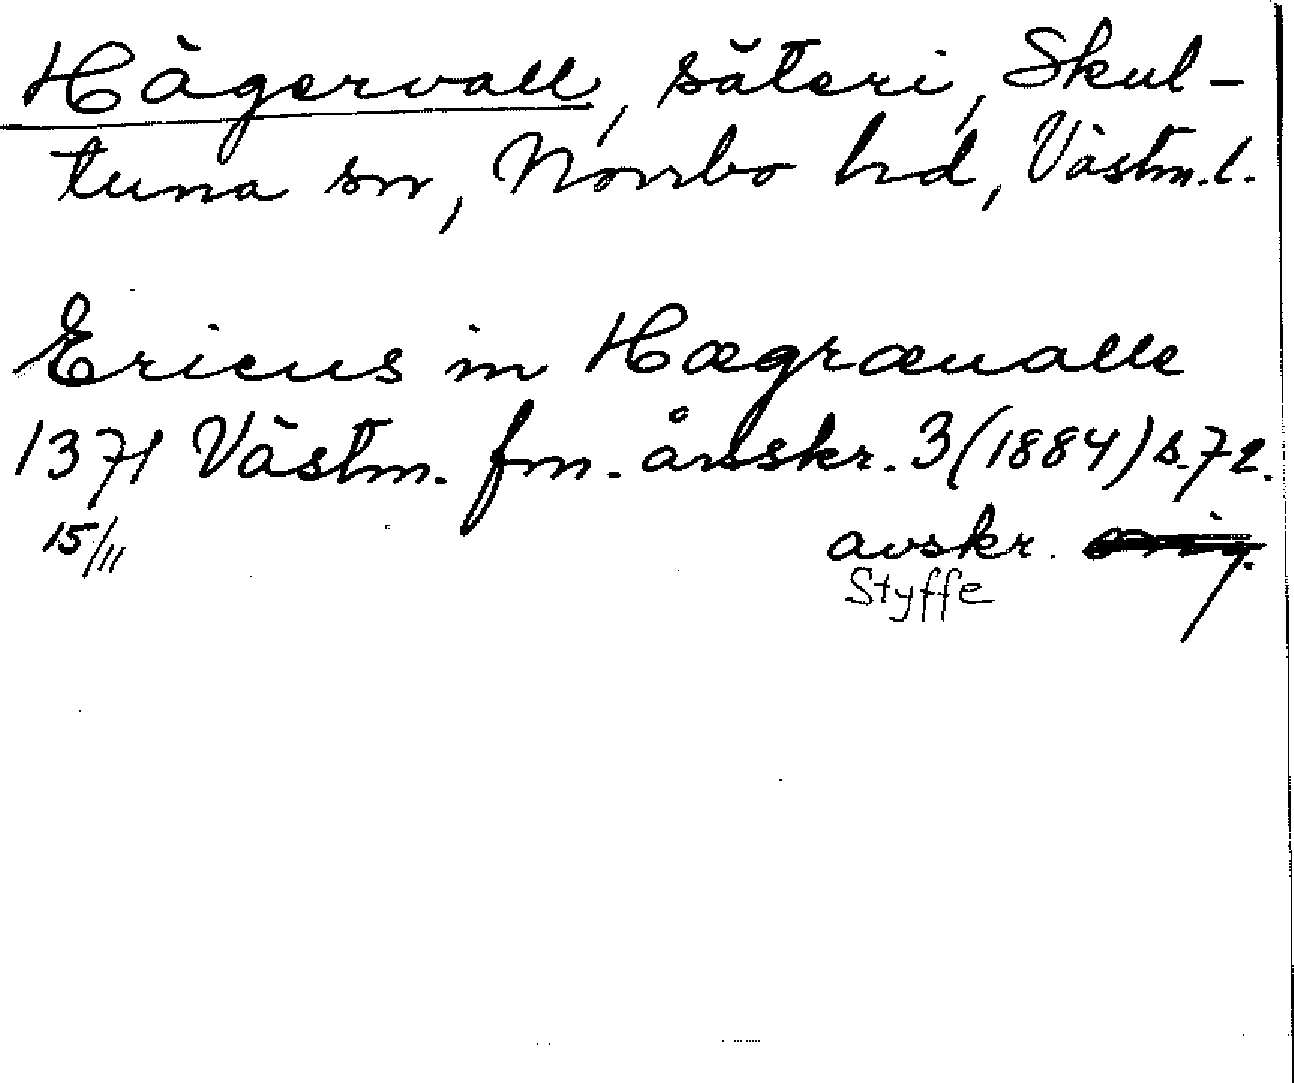 Hägervall, säteri, Skul-
tuna sn, Norrbo hd, Västm. l.
Ericus in Hægræualle
1371 Västm. fm. årsskr. 3 (1884) s. 72.
15/11 avskr. orig.
Styffe